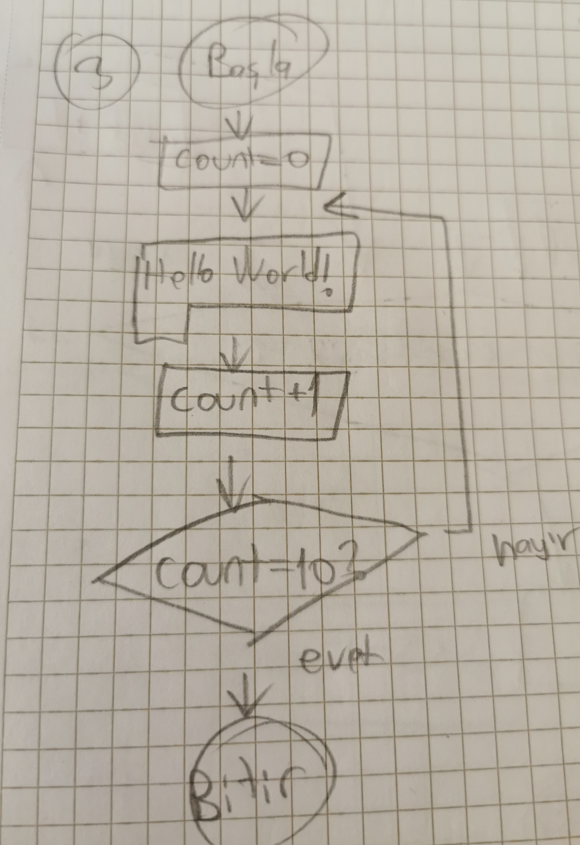 3 Başla
count=0
Hello World!
count+1
count=10?
hayır
evet
Bitir